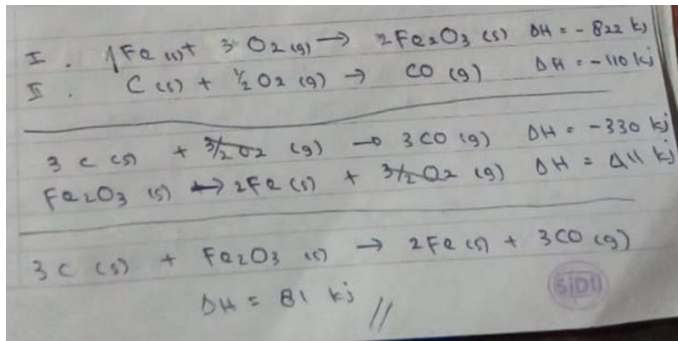 I. 4Fe (s) + 3 O2 (g) → 2Fe2O3 (s) ΔH = - 822 kj
II. C (s) + 1/2 O2 (g) → CO (g) ΔH = -110 kj
3 C (s) + 3/2 O2 (g) → 3CO (g) ΔH = -330 kj
Fe2O3 (s) → 2Fe (s) + 3/2 O2 (g) ΔH = 411 kj
3 C (s) + Fe2O3 (s) → 2Fe (s) + 3CO (g)
ΔH = 81 kj //
SiDU